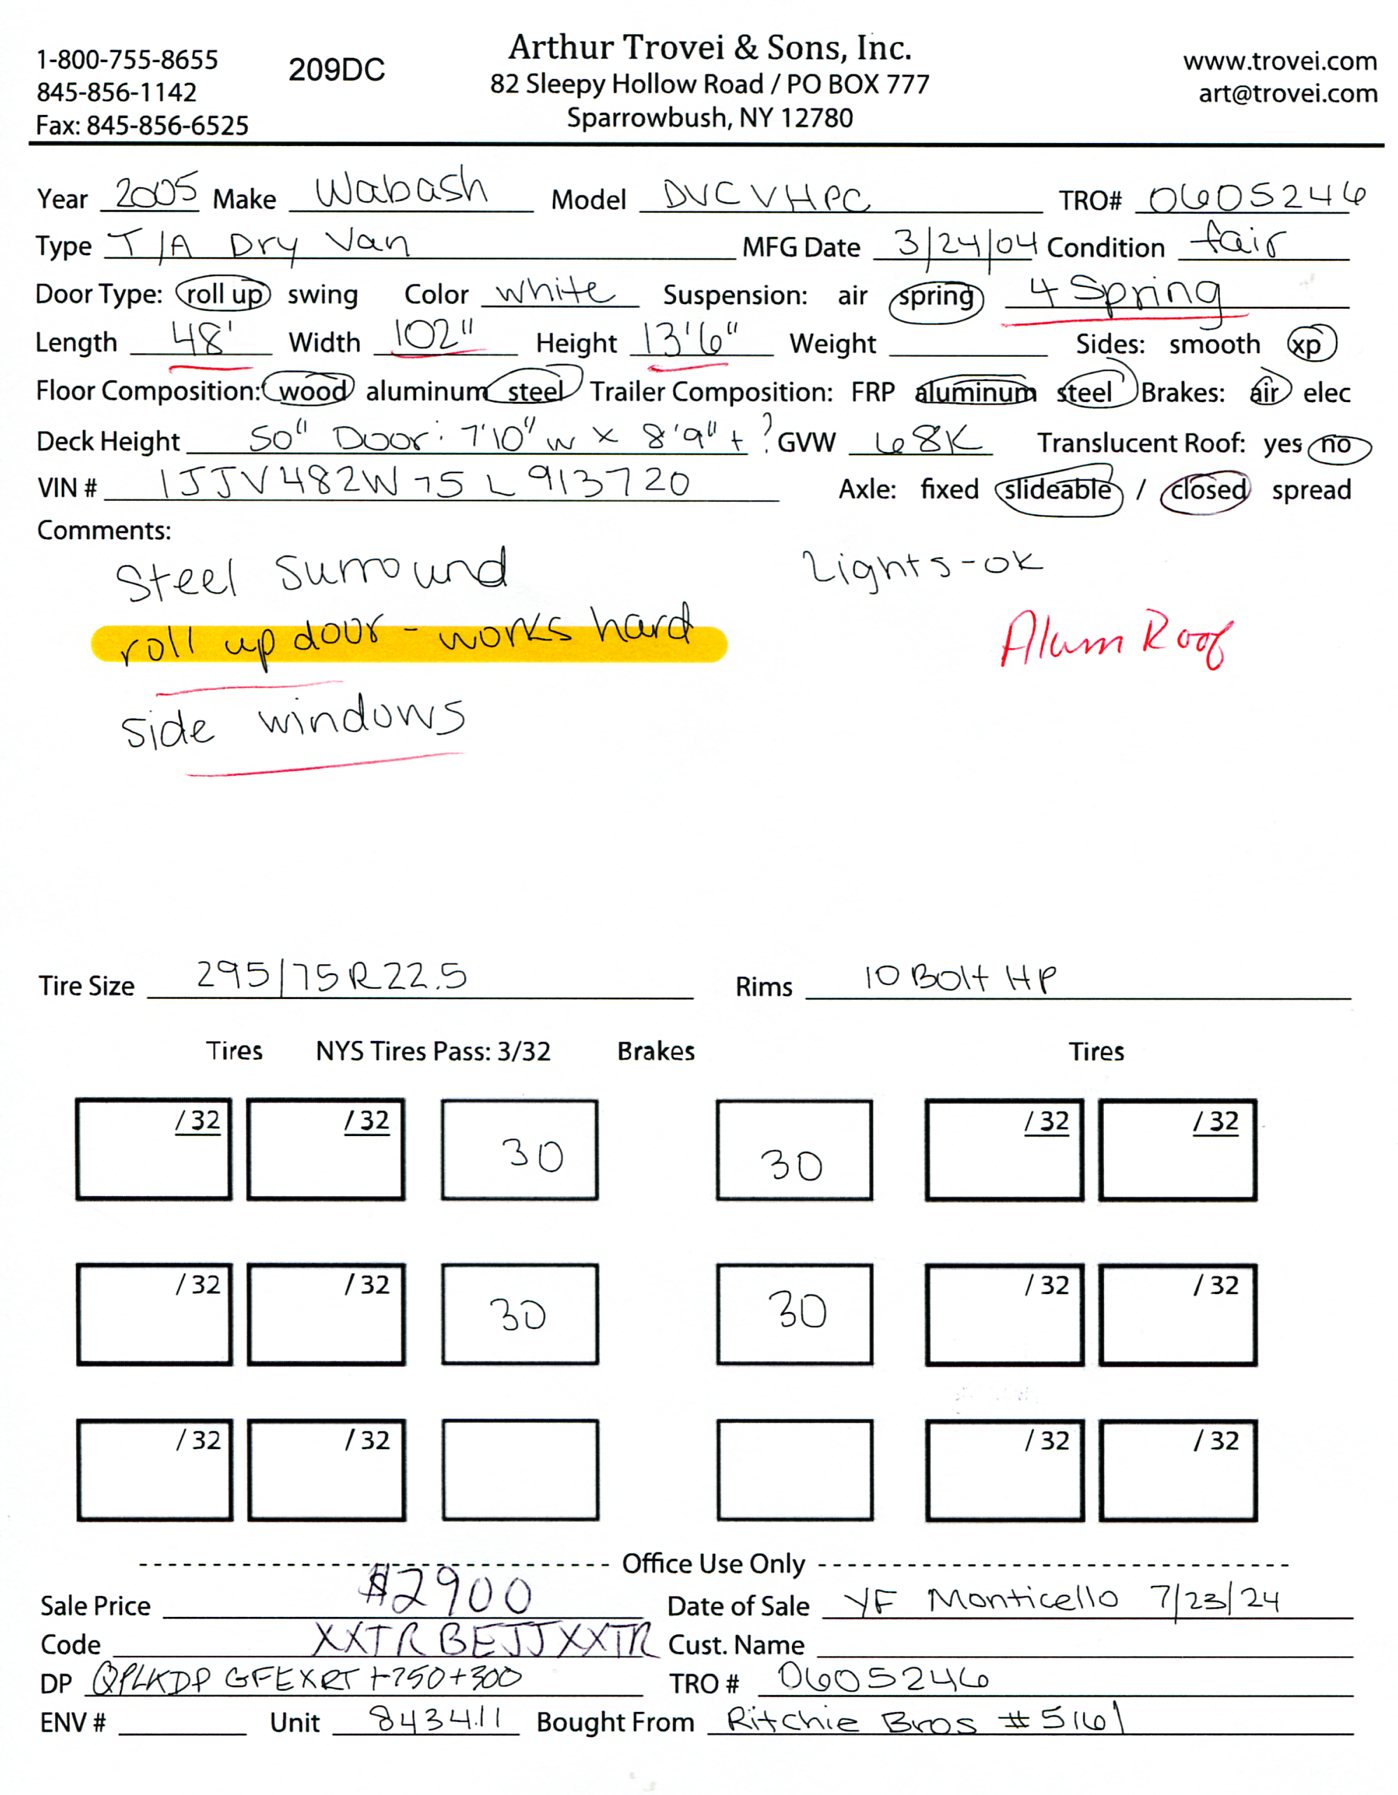 Arthur Trovei & Sons, Inc.
1-800-755-8655 209DC 82 Sleepy Hollow Road / PO BOX 777 www.trovei.com
845-856-1142 art@trovei.com
Fax: 845-856-6525 Sparrowbush, NY 12780
Year 2005 Make Wabash Model DVCVHPC TRO# 0605246
Type T/A Dry Van MFG Date 3/24/04 Condition fair
Door Type: roll up swing Color white Suspension: air spring 4 Spring
Length 48' Width 102" Height 13'6" Weight Sides: smooth xp
Floor Composition: wood aluminum steel Trailer Composition: FRP aluminum steel Brakes: air elec
Deck Height 50" Door: 7'10" w x 8'9" t ? GVW 68K Translucent Roof: yes no
VIN # 1JJV482W75L913720 Axle: fixed slideable / closed spread
Comments:
Steel Surround Lights-ok
roll up door - works hard Alum Roof
side windows
Tire Size 295/75R22.5 Rims 10 Bolt HP
Tires NYS Tires Pass: 3/32 Brakes Tires
/32 /32 30 30 /32 /32
/32 /32 30 30 /32 /32
/32 /32 /32 /32
Office Use Only
Sale Price $2900 Date of Sale YF Monticello 7/23/24
Code XXTRBEJJXXTR Cust. Name
DP QPLKDP GFEXRT +750+300 TRO # 0605246
ENV # Unit 843411 Bought From Ritchie Bros #5161